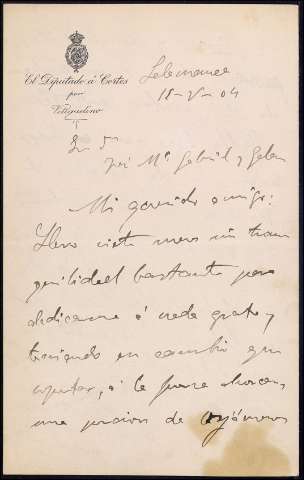 El Diputado á Cortes
por
Vitigudino
Salamanca
15-V-04
Sr Dn
José Mª Gabriel y Galan
Mi querido amigo:
Llevo siete meses sin tran
quilidad bastante para
dedicarme á nada grato y
teniendo en cambio que
soportar, á la fuerza
una porcion de